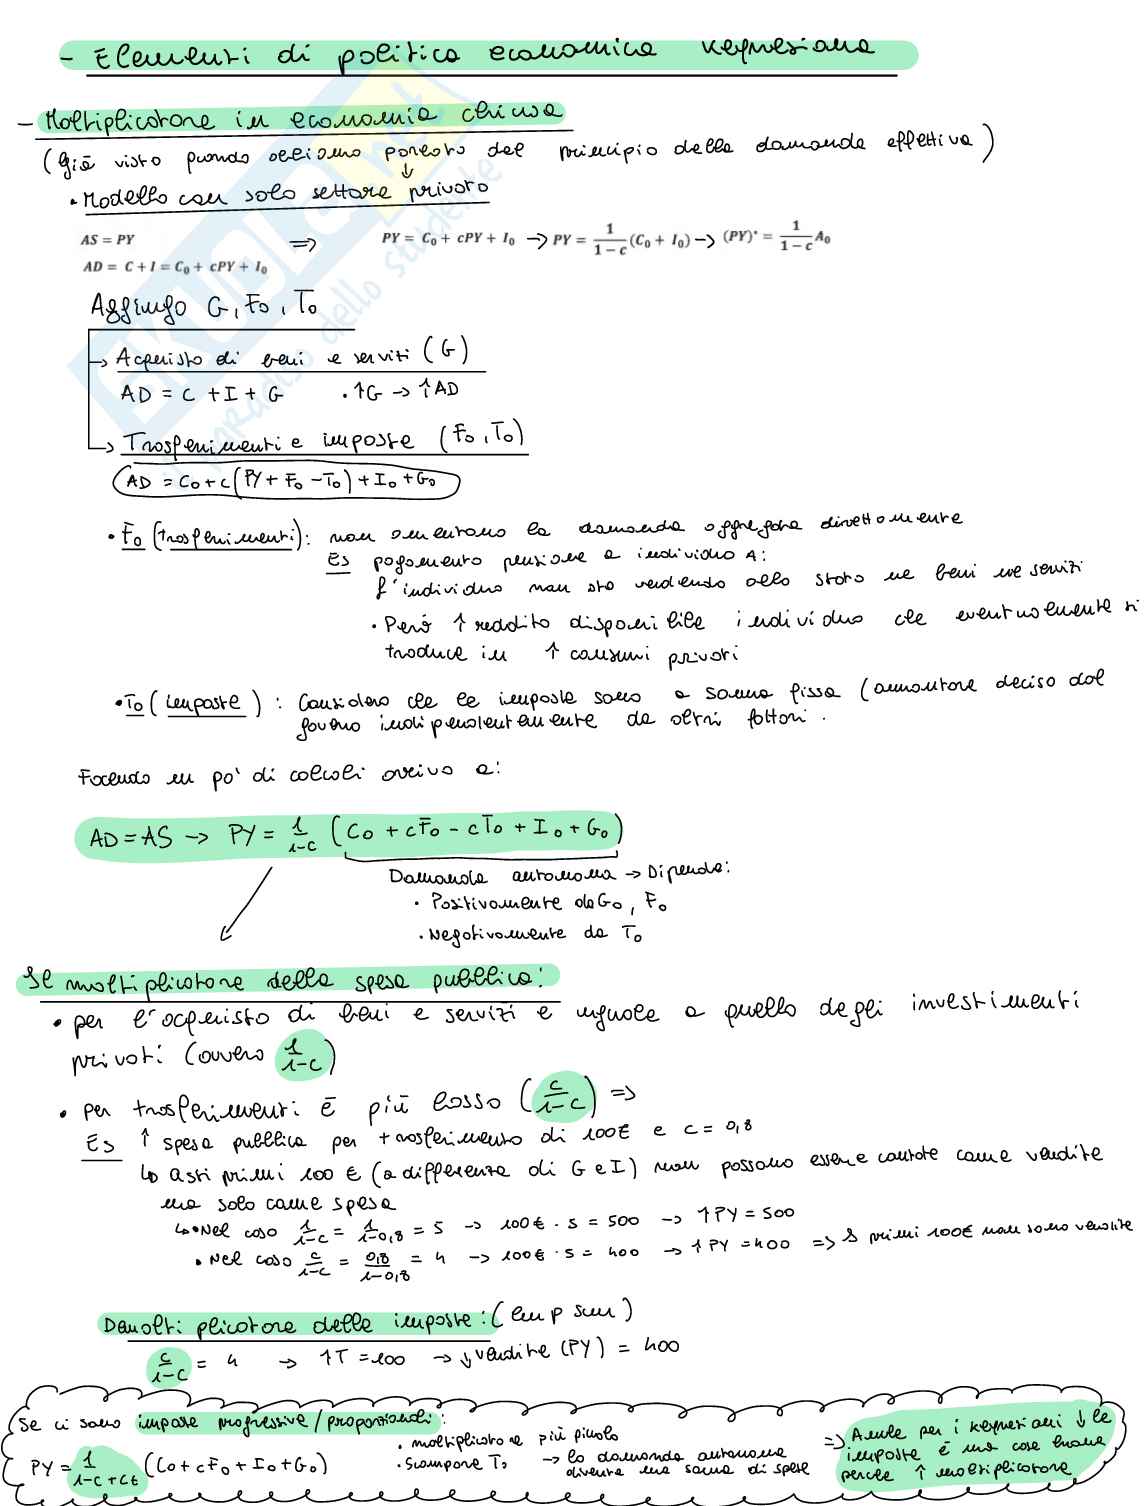 - Elementi di politica economica keynesiana
- Moltiplicatore in economia chiusa
(già visto quando abbiamo parlato del principio della domanda effettiva)
↓
• Modello con solo settore privato
AS = PY ⇒ PY = C₀ + cPY + I₀ → PY = 1/(1−c) (C₀ + I₀) → (PY)* = 1/(1−c) A₀
AD = C + I = C₀ + cPY + I₀
Aggiungo G, F₀, T₀
→ Acquisto di beni e serviti (G)
AD = C + I + G • ↑G → ↑AD
→ Trasferimenti e imposte (F₀, T₀)
AD = C₀ + c(PY + F₀ - T₀) + I₀ + G₀
• F₀ (trasferimenti): non aumentano la domanda aggregata direttamente
Es pagamento pensione a individuo A:
L'individuo non sta vendendo allo stato ne beni ne servizi
• Però ↑ reddito disponibile individuo che eventualmente si
traduce in ↑ consumi privati
• T₀ (imposte): Considero che le imposte sono a somma fissa (ammontare deciso dal
governo indipendentemente da altri fattori.
Facendo un po' di calcoli arrivo a:
AD = AS → PY = 1/(1-c) (C₀ + cF₀ - cT₀ + I₀ + G₀)
Domanda autonoma → Dipende:
• Positivamente da G₀, F₀
• Negativamente da T₀
Il moltiplicatore della spesa pubblica:
• per l'acquisto di beni e servizi è uguale a quello degli investimenti
privati (ovvero 1/(1-c))
• per trasferimenti è più basso (c/(1-c)) =>
Es ↑ spesa pubblica per trasferimento di 100€ e c = 0,8
↳ questi primi 100 € (a differenza di G e I) non possono essere contate come vendite
ma solo come spesa
↳ • Nel caso 1/(1-c) = 1/(1-0,8) = 5 → 100€ · 5 = 500 → ↑PY = 500
• Nel caso c/(1-c) = 0,8/(1-0,8) = 4 → 100€ · 5 = 400 → ↑PY = 400 => I primi 100€ non sono vendite
Demoltiplicatore delle imposte: (lump sum)
c/(1-c) = 4 → ↑T = 100 → ↓ vendite (PY) = 400
Se ci sono imposte progressive/proporzionali:
PY = 1/(1-c+ct) (C₀ + cF₀ + I₀ + G₀)
• moltiplicatore più piccolo
• Scompare T₀ → la domanda autonoma
diventa una somma di spese
=> Anche per i keynesiani ↓ le
imposte è una cosa buona
perché ↑ moltiplicatore
SKUOLA.net
il paradiso dello studente